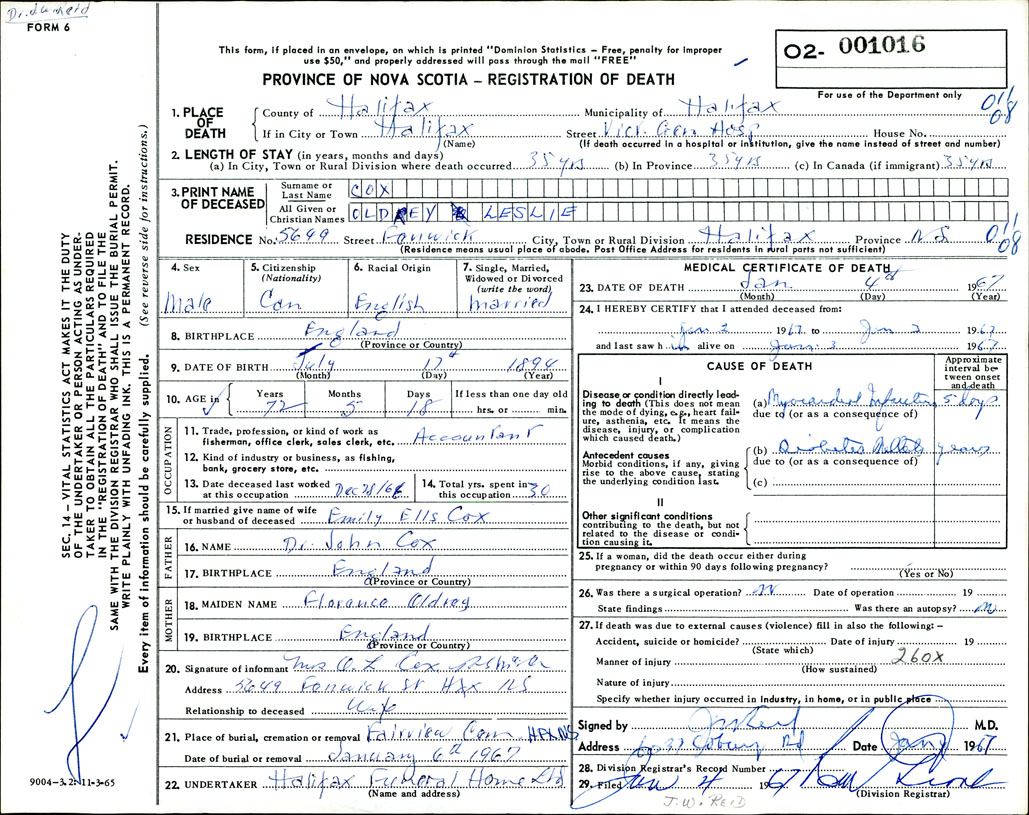 Dr. J.W. Reid
FORM 6
This form, if placed in an envelope, on which is printed "Dominion Statistics – Free, penalty for improper
use $50," and properly addressed will pass through the mail "FREE"
PROVINCE OF NOVA SCOTIA – REGISTRATION OF DEATH
O2- 001016
For use of the Department only
SEC. 14 – VITAL STATISTICS ACT MAKES IT THE DUTY
OF THE UNDERTAKER OR PERSON ACTING AS UNDER-
TAKER TO OBTAIN ALL THE PARTICULARS REQUIRED
IN THE "REGISTRATION OF DEATH" AND TO FILE THE
SAME WITH THE DIVISION REGISTRAR WHO SHALL ISSUE THE BURIAL PERMIT.
WRITE PLAINLY WITH UNFADING INK. THIS IS A PERMANENT RECORD.
Every item of information should be carefully supplied. (See reverse side for instructions.)
1. PLACE OF DEATH
County of Halifax Municipality of Halifax 011/08
If in City or Town Halifax Street Vict. Gen Hosp House No.
(Name) (If death occurred in a hospital or institution, give the name instead of street and number)
2. LENGTH OF STAY (in years, months and days)
(a) In City, Town or Rural Division where death occurred 35 yrs (b) In Province 35 yrs (c) In Canada (if immigrant) 35 yrs
3. PRINT NAME OF DECEASED
Surname or Last Name COX
All Given or Christian Names OLDREY LESLIE
RESIDENCE No. 5649 Street Fenwick City, Town or Rural Division Halifax Province NS 011/08
(Residence means usual place of abode. Post Office Address for residents in rural parts not sufficient)
4. Sex Male
5. Citizenship (Nationality) Can
6. Racial Origin English
7. Single, Married, Widowed or Divorced (write the word) Married
8. BIRTHPLACE England
(Province or Country)
9. DATE OF BIRTH July 17th 1894
(Month) (Day) (Year)
10. AGE in Years 72 Months 5 Days 18 If less than one day old hrs. or min.
OCCUPATION
11. Trade, profession, or kind of work as
fisherman, office clerk, sales clerk, etc. Accountant
12. Kind of industry or business, as fishing,
bank, grocery store, etc.
13. Date deceased last worked
at this occupation Dec 28/66
14. Total yrs. spent in
this occupation 30
15. If married give name of wife
or husband of deceased Emily Ells Cox
FATHER
16. NAME Dr. John Cox
17. BIRTHPLACE England
(Province or Country)
MOTHER
18. MAIDEN NAME Florence Oldrey
19. BIRTHPLACE England
(Province or Country)
20. Signature of informant Mrs O. L. Cox
Address 5649 Fenwick St Hfx NS
Relationship to deceased Wife
21. Place of burial, cremation or removal Fairview Cem. HFX NS
Date of burial or removal January 6th 1967
22. UNDERTAKER Halifax Funeral Home Ltd
(Name and address)
9004–3.2: 11-3-65
MEDICAL CERTIFICATE OF DEATH
23. DATE OF DEATH Jan 4th 1967
(Month) (Day) (Year)
24. I HEREBY CERTIFY that I attended deceased from:
Jan 2 1967 to Jan 2 1967
and last saw him alive on Jan. 3 1967
CAUSE OF DEATH
Approximate interval between onset and death
I
Disease or condition directly leading to death (This does not mean the mode of dying, e.g., heart failure, asthenia, etc. It means the disease, injury, or complication which caused death.)
(a) Myocardial Infarction 5 days
due to (or as a consequence of)
Antecedent causes
Morbid conditions, if any, giving rise to the above cause, stating the underlying condition last.
(b) Diabetes Mellitus years
due to (or as a consequence of)
(c)
II
Other significant conditions
contributing to the death, but not related to the disease or condition causing it.
25. If a woman, did the death occur either during
pregnancy or within 90 days following pregnancy?
(Yes or No)
26. Was there a surgical operation? N Date of operation 19
State findings Was there an autopsy? N
27. If death was due to external causes (violence) fill in also the following: –
Accident, suicide or homicide? Date of injury 19
(State which)
Manner of injury 260X
(How sustained)
Nature of injury
Specify whether injury occurred in Industry, in home, or in public place
Signed by JW Reid M.D.
Address Coburg Rd Date Jan 1967
28. Division Registrar's Record Number
29. Filed Jan 4 1967
(Division Registrar)
J.W. REID